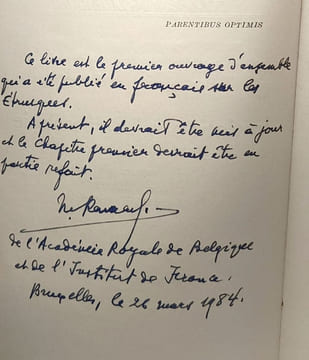 PARENTIBUS OPTIMIS
Ce livre est le premier ouvrage d'ensemble
qui a été publié en français sur les
Étrusques.
A présent, il devrait être mis à jour
et le Chapitre premier devrait être en
partie refait.
de l'Académie Royale de Belgique
et de l'Institut de France.
Bruxelles, le 26 mars 1984.